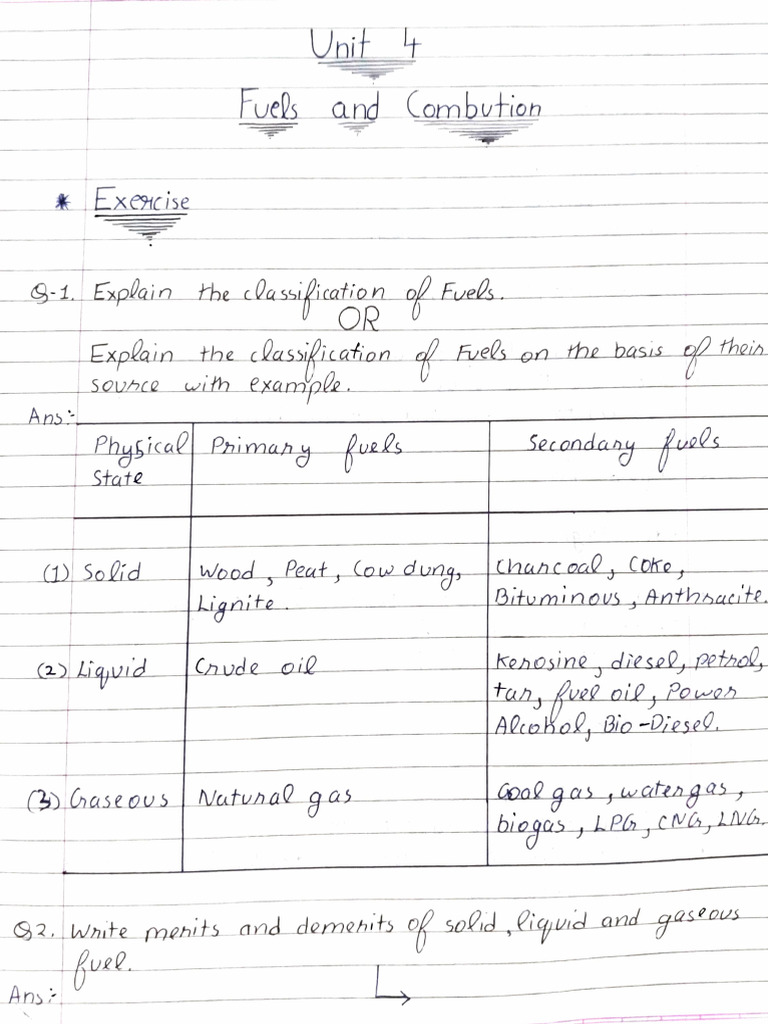 Unit 4
Fuels and Combution
* Exercise
Q-1. Explain the classification of Fuels.
OR
Explain the classification of Fuels on the basis of their
source with example.
Ans:-
Physical State | Primary fuels | Secondary fuels
(1) Solid | Wood, Peat, Cow dung, | Charcoal, Coke,
Lignite. | Bituminous, Anthracite.
(2) Liquid | Crude oil | Kerosine, diesel, petrol,
tar, fuel oil, Power
Alcohol, Bio-Diesel.
(3) Gaseous | Natural gas | Coal gas, water gas,
biogas, LPG, CNG, LNG.
Q2. Write merits and demerits of solid, liquid and gaseous
fuel.
Ans:-